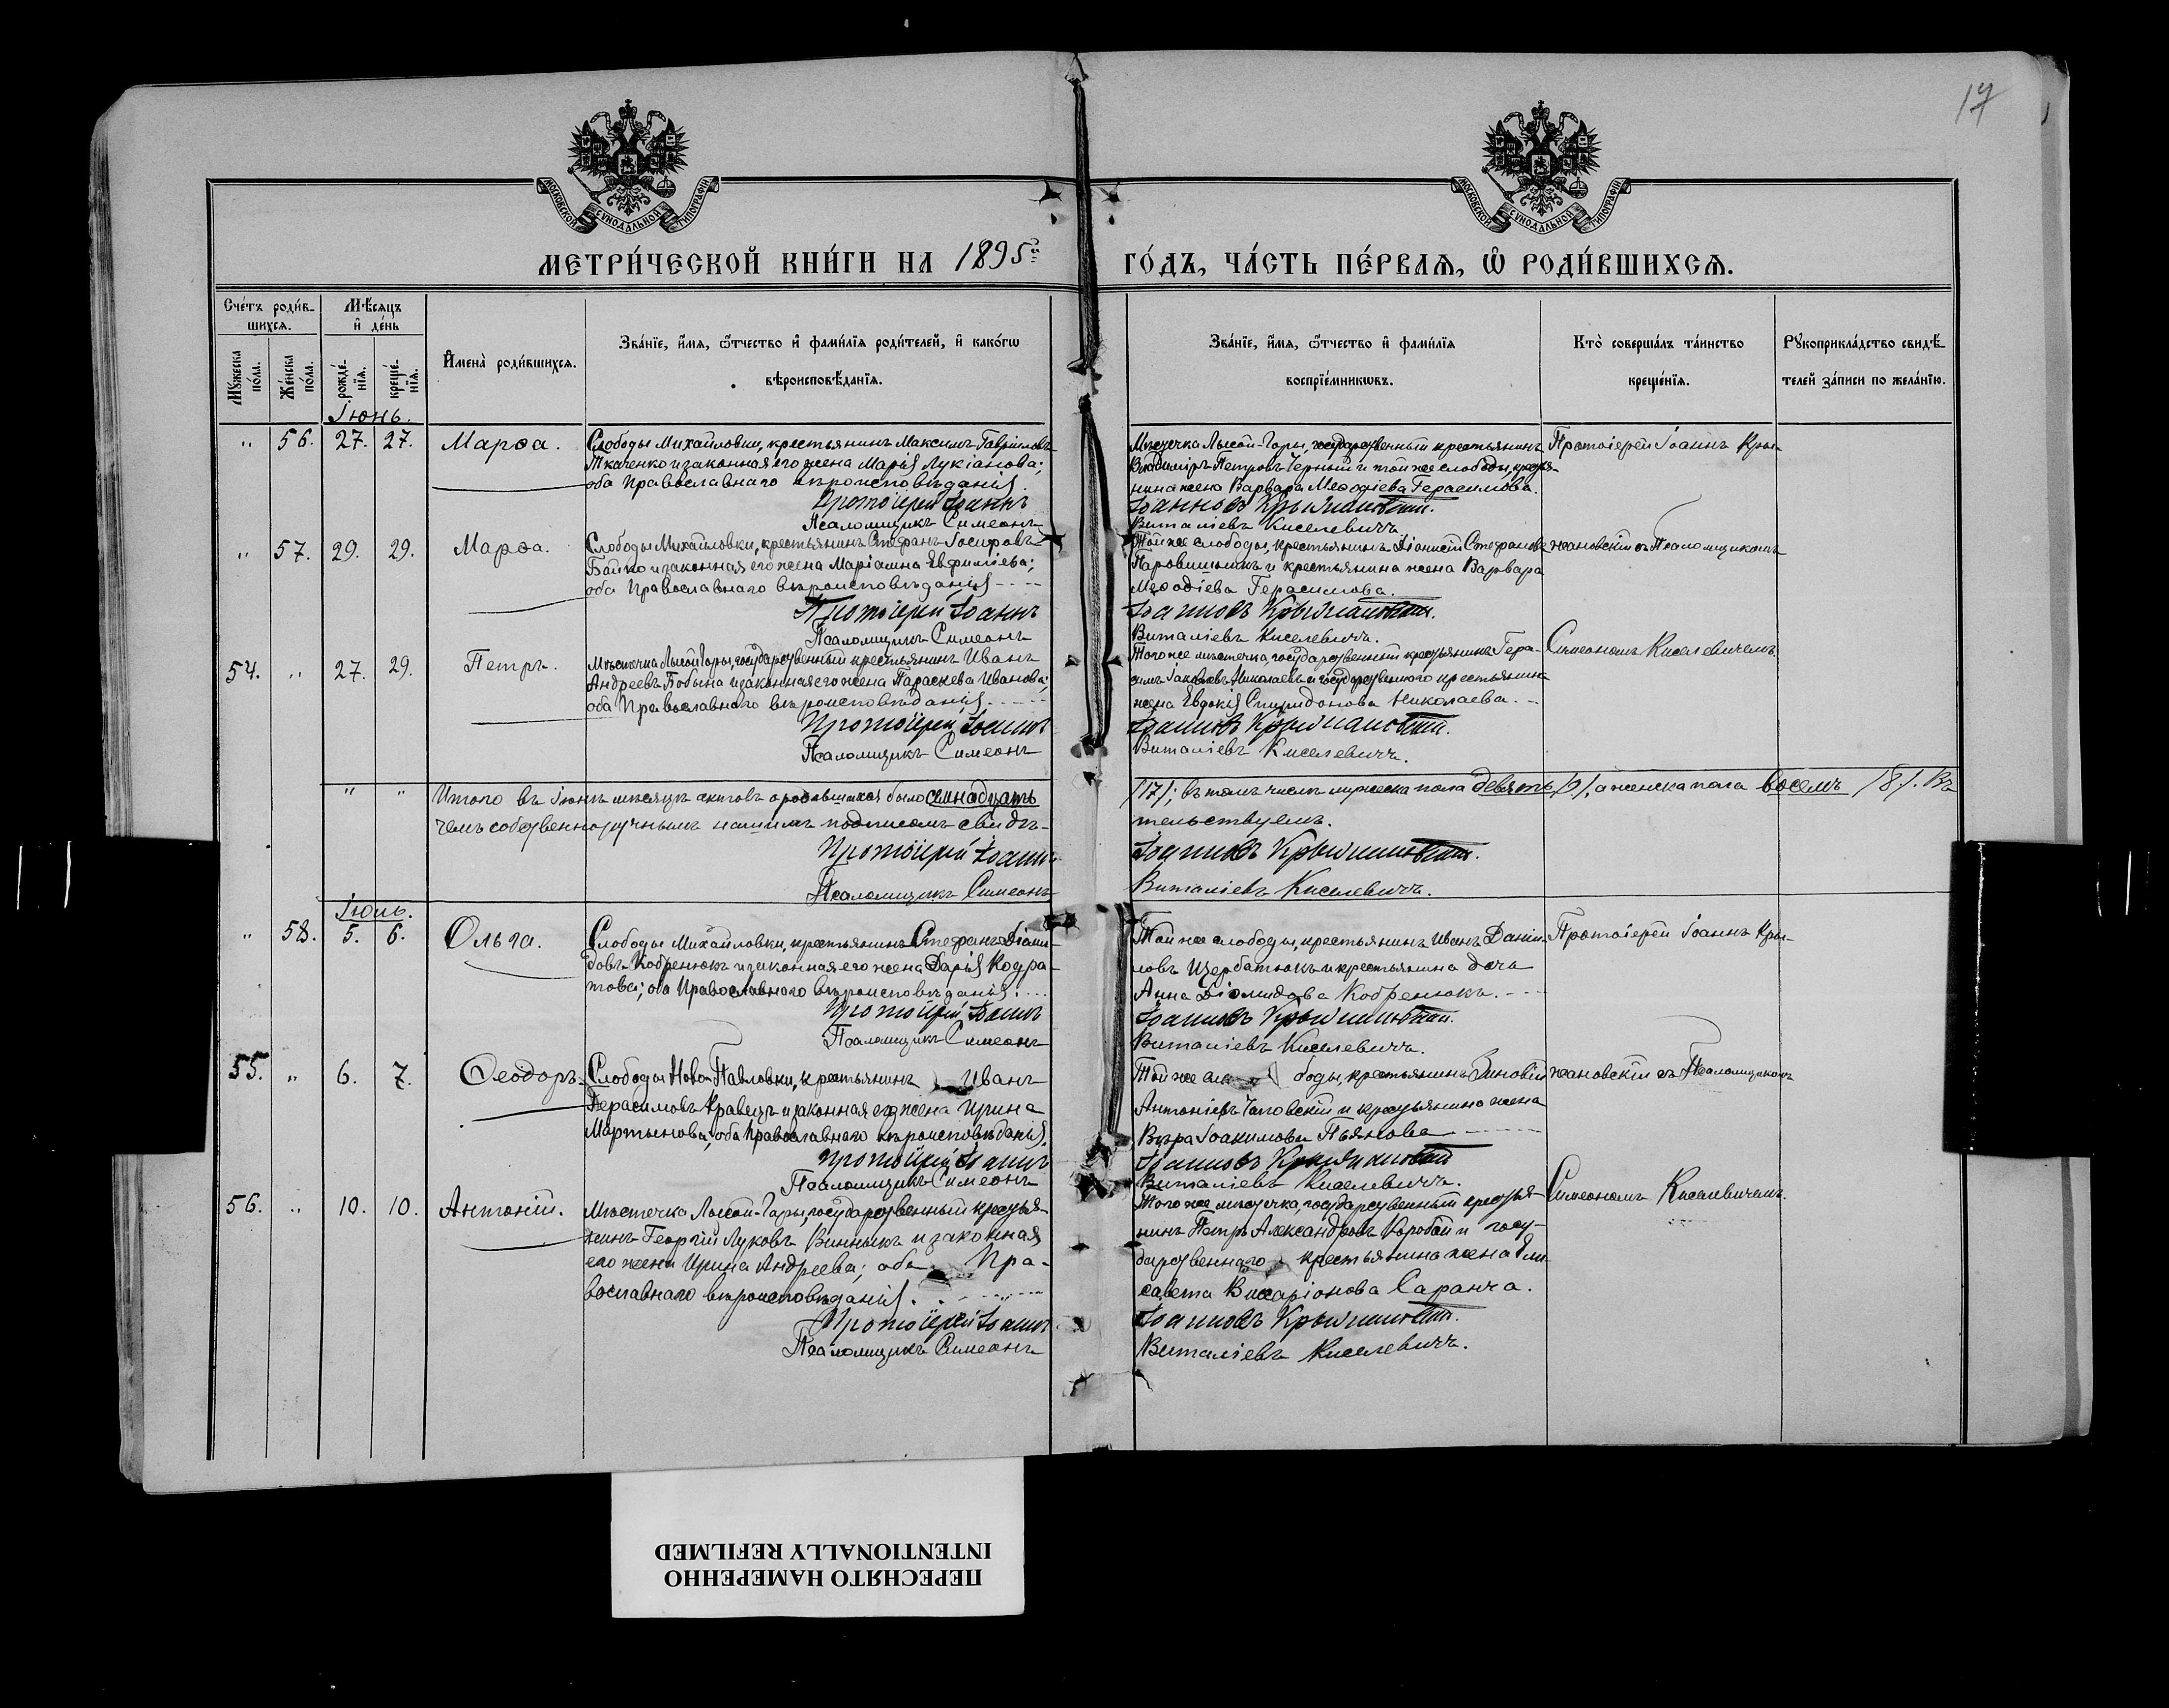 17
МОСКОВСКОЙ СѴНОДАЛЬНОЙ ТИПОГРАФІИ
МОСКОВСКОЙ СѴНОДАЛЬНОЙ ТИПОГРАФІИ
МЕТРИ́ЧЕСКОЙ КНИ́ГИ НА 1895й
ГО́ДЪ, ЧА́СТЬ ПЕ́РВАЯ, Ѡ РОДИ́ВШИХСЯ.
Сче́тъ роди́вшихся.
Мꙋ́жеска по́ла.
Же́нска по́ла.
Мѣ́сяцъ и҆ де́нь
рожде́нїя.
креще́нїя.
И҆мена̀ роди́вшихся.
Зва́нїе, и҆́мя, ѻ҆́тчество и҆ фами́лїя роди́телей, и҆ како́гѡ
вѣроисповѣ́данїя.
Зва́нїе, и҆́мя, ѻ҆́тчество и҆ фами́лїя
воспрїе́мникѡвъ.
Кто̀ соверша́лъ та́инство
креще́нїя.
Рꙋкоприкла́дство свидѣ́-
телей за́писи по жела́нїю.
Іюнь.
" 56. 27. 27. Марѳа.
Слободы Михайловки, крестьянинъ Максимъ Гавриловъ
Ткаченко и законная его жена Марія Лукіанова;
оба Православнаго вѣроисповѣданія.
Протоіерей Іоаннъ
Псаломщикъ Симеонъ
Мѣстечка Лысой-Горы, государственный крестьянинъ
Владиміръ Петровъ Черный и той же слободы, крестья-
нина жена Варвара Меѳодіева Герасимова.
Іоанновъ Крыжановскій.
Виталіевъ Киселевичъ.
Протоіерей Іоаннъ Кры-
" 57. 29. 29. Марѳа.
Слободы Михайловки, крестьянинъ Стефанъ Іосифовъ
Байко и законная его жена Маріамна Евфиміева;
оба Православнаго вѣроисповѣданія
Протоіерей Іоаннъ
Псаломщикъ Симеонъ
Той же слободы, крестьянинъ Діонисій Стефановъ
и крестьянина жена Варвара
Меѳодіева Герасимова.
Іоанновъ Крыжановскій.
Виталіевъ Киселевичъ.
жановскій съ Псаломщикомъ
54. " 27. 29. Петръ.
Мѣстечка Лысой Горы, государственный крестьянинъ Иванъ
Андреевъ Бобына и законная его жена Параскева Иванова;
оба Православнаго вѣроисповѣданія.
Протоіерей Іоаннъ
Псаломщикъ Симеонъ
Того же мѣстечка, государственный крестьянинъ Гера-
симъ Іаковлевъ Николаевъ и государственнаго крестьянина
жена Евдокія Спиридонова Николаева.
Іоанновъ Крыжановскій.
Виталіевъ Киселевичъ.
Симеономъ Киселевичемъ.
" " Итого въ Іюнѣ мѣсяцѣ актовъ о родившихся было семнадцать
/17/; въ томъ числѣ мужеска пола девять /9/, а женска пола восемъ /8/. Въ
чемъ собственноручнымъ нашимъ подписомъ свидѣ-
тельствуемъ.
Протоіерей Іоаннъ
Псаломщикъ Симеонъ
Іоанновъ Крыжановскій.
Виталіевъ Киселевичъ.
Іюль.
" 58. 5. 6. Ольга.
Слободы Михайловки, крестьянинъ Стефанъ Діоми-
довъ Кобренюкъ и законная его жена Дарія Кодра-
това; оба Православнаго вѣроисповѣданія.
Протоіерей Іоаннъ
Псаломщикъ Симеонъ
Той же слободы, крестьянинъ Иванъ Дании-
ловъ Щербатюкъ и крестьянина дочь
Анна Діомидова Кобренюкъ.
Іоанновъ Крыжановскій.
Виталіевъ Киселевичъ.
Протоіерей Іоаннъ Кры-
55. " 6. 7. Ѳеодоръ.
Слободы Ново-Павловки, крестьянинъ Иванъ
Герасимовъ Кравецъ и законная его жена Ирина
Мартынова; оба Православнаго вѣроисповѣданія.
Протоіерей Іоаннъ
Псаломщикъ Симеонъ
Той же сло боды, крестьянинъ Зиновій
Антоніевъ Чаповскій и крестьянина жена
Вѣра Іоакимова Пьянова
Іоанновъ Крыжановскій
Виталіевъ Киселевичъ.
жановскій съ Псаломщикомъ
56. " 10. 10. Антоній.
Мѣстечка Лысой-Горы, государственный крестья-
нинъ Георгій Луковъ Винныкъ и законная
его жена Ирина Андреева; оба Пра-
вославнаго вѣроисповѣданія.
Протоіерей Іоаннъ
Псаломщикъ Симеонъ
Того же мѣстечка, государственный крестья-
нинъ Петръ Александровъ Коробой и госу-
дарственнаго крестьянина жена Ели-
савета Виссаріонова Саранча.
Іоанновъ Крыжановскій.
Виталіевъ Киселевичъ.
Симеономъ Киселевичемъ.
ПЕРЕСНЯТО НАМЕРЕННО
INTENTIONALLY REFILMED